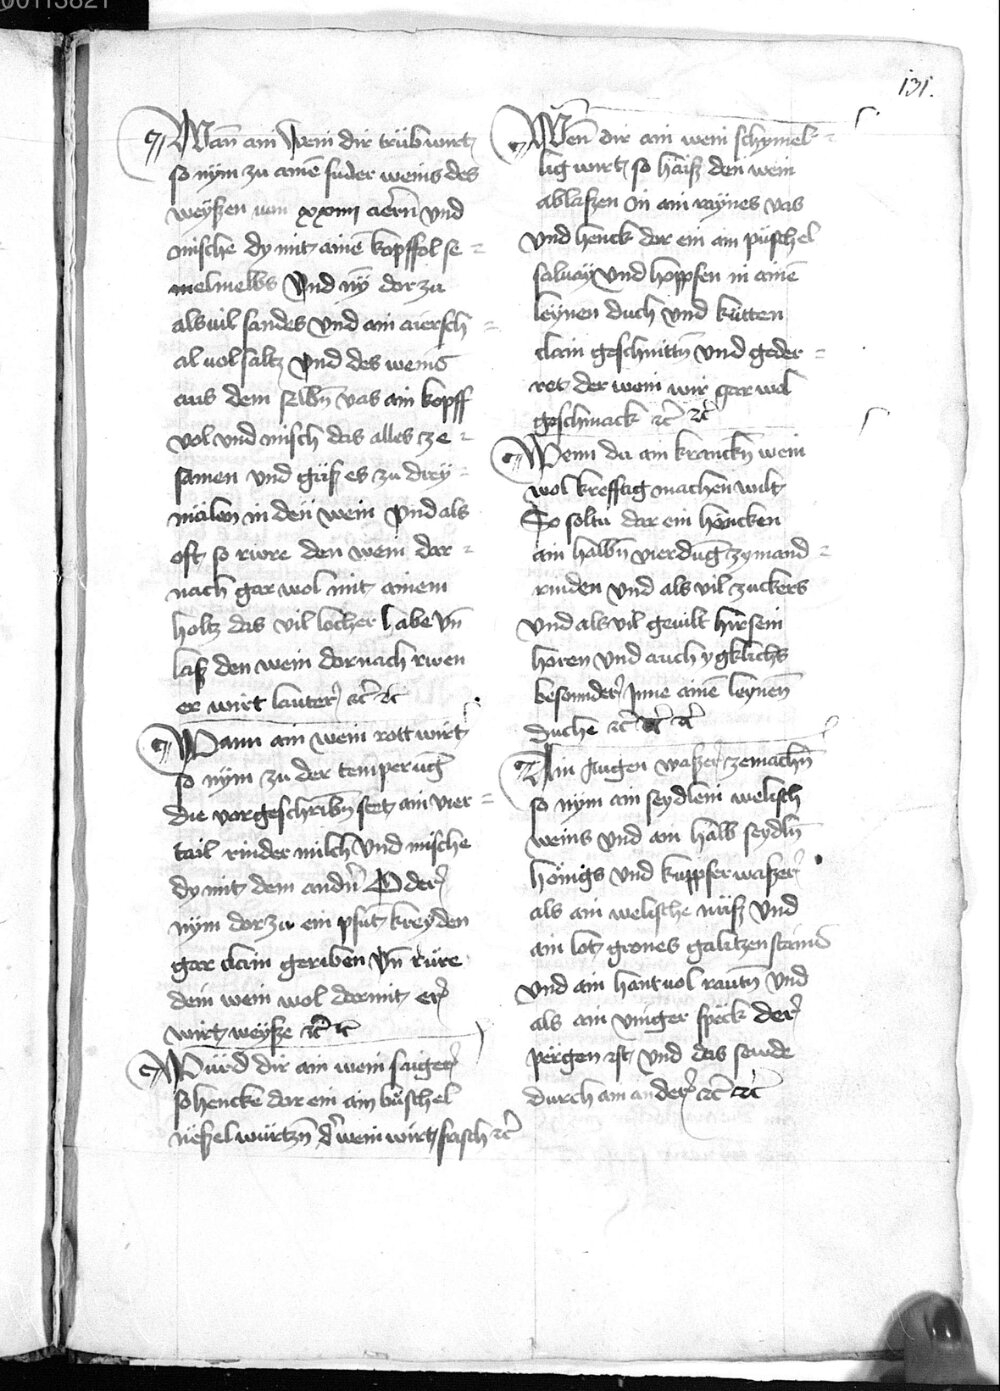 00113821
131.
Wan̄ ain wein dir trüb wirt
so nÿm zu ainē fuder weins des
weÿszen von xxiiij aiern̄ vnd
mische dy mit ainē kopffol se=
melmelbs vnd nÿ dor zu
alsuil sandes vnd ain aiersch=
al uol saltz vnd des weins
aus dem selbn̄ vas ain kopff
vol vnd misch das alles ze=
samen vnd güsz es zu dreÿ=
mälen in den wein vnd als
oft so rure den wein dar=
nach gar wol mit ainem
holtz das vil locher habe vn̄
lasz den wein dornach rwen
er wirt lauter ꝛc̄ ꝛc̄
Wann ain wein rott wirt
so nÿm zu der temperūg
die vorgeschribn̄ stet ain vier=
tail rinder milch vnd mische
dy mit dem andn̄ Oder
nÿm dorzu ein pfūt kreyden
gar clain geriben vn̄ rüre
dein wein wol dormit er
wirt weÿsze ꝛc̄ ꝛc̄
Würd dir ain wein saiger
so hencke dor ein ain büschel
neszel würtzn̄ d̄ wein wirt frisch ꝛc̄
Wen̄ dir ain wein schymel=
lig wirt so haisz den wein
ablaszen in ain raÿnes vas
vnd henck dor ein ain püschel
saluaÿ vnd hoppfen in ainē
leÿnen duch vnd kütten
clain geschnittn̄ vnd geder=
ret der wein wir gar wol
geschmack ꝛc̄ ꝛc̄
Wenn du ain kranckn̄ wein
wol krefftig machen wilt
So soltu dar ein hencken
ain halbn̄ vierdūg zymand=
rinden vnd als vil zuckers
vnd als vil geuilt hirsein
horen vnd auch ygklichs
besonnder Inne ainē leynen̄
duche ꝛc̄ ꝛc̄ ꝛc̄
Ain Augen waszer zemachn̄
so nÿm ain seydlein welisch
weins vnd ain halb seydln̄
hönigs vnd kuppfer waszer
als ain welische nüsz vnd
ain lot grones galitzenstains
vnd ain hantuol rautn̄ vnd
als ain vinger speck der
vergen ist vnd das sewde
durch ain ander ꝛc̄ ꝛc̄